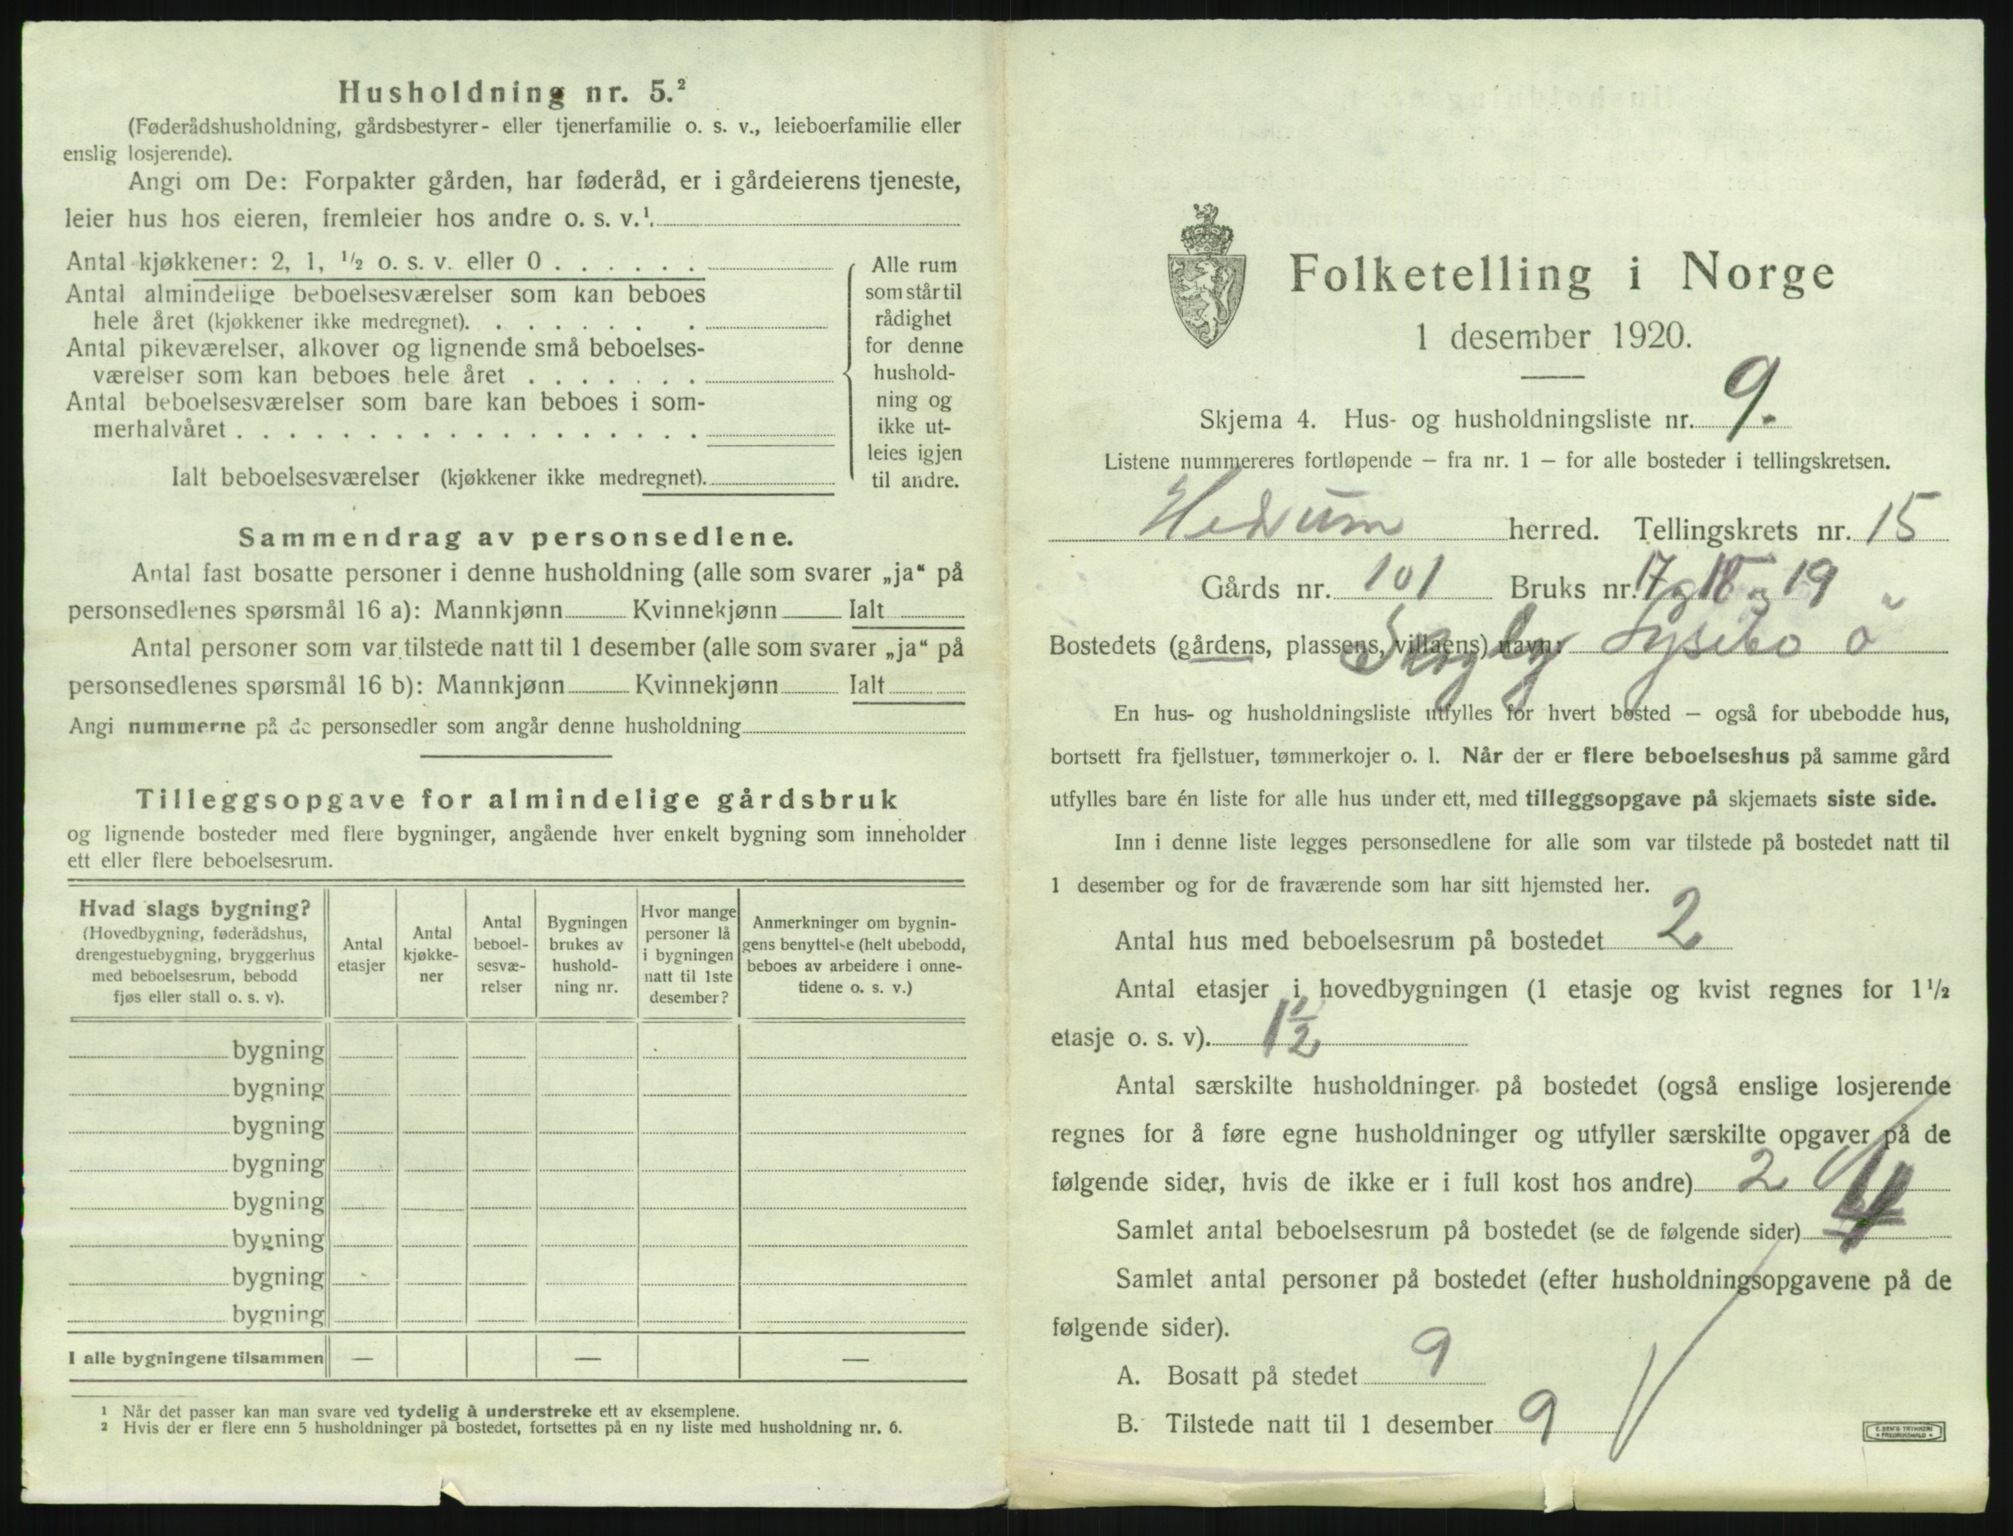 Husholdning nr. 5.²
(Føderådshusholdning, gårdsbestyrer- eller tjenerfamilie o. s. v., leieboerfamilie eller
enslig losjerende).
Angi om De: Forpakter gården, har føderåd, er i gårdeierens tjeneste,
leier hus hos eieren, fremleier hos andre o. s. v.¹.
Antal kjøkkener: 2, 1, ½ o. s. v. eller 0 . . . . . .
Antal almindelige beboelsesværelser som kan beboes
hele året (kjøkkener ikke medregnet). . . . . . . . .
Antal pikeværelser, alkover og lignende små beboelses-
værelser som kan beboes hele året . . . . . . .
Antal beboelsesværelser som bare kan beboes i som-
merhalvåret . . . . . . . . . . . . . . . . . .
Ialt beboelsesværelser (kjøkkener ikke medregnet).
Alle rum
som står til
rådighet
for denne
hushold-
ning og
ikke ut-
leies igjen
til andre.
Sammendrag av personsedlene.
Antal fast bosatte personer i denne husholdning (alle som svarer „ja“ på
personsedlenes spørsmål 16 a): Mannkjønn Kvinnekjønn Ialt
Antal personer som var tilstede natt til 1 desember (alle som svarer „ja“ på
personsedlenes spørsmål 16 b): Mannkjønn Kvinnekjønn Ialt
Angi nummerne på de personsedler som angår denne husholdning
Tilleggsopgave for almindelige gårdsbruk
og lignende bosteder med flere bygninger, angående hver enkelt bygning som inneholder
ett eller flere beboelsesrum.
Hvad slags bygning?
(Hovedbygning, føderådshus,
drengestuebygning, bryggerhus
med beboelsesrum, bebodd
fjøs eller stall o. s. v).
Antal
etasjer
Antal
kjøkke-
ner
Antal
beboel-
sesvæ-
relser
Bygningen
brukes av
hushold-
ning nr.
Hvor mange
personer lå
i bygningen
natt til 1ste
desember?
Anmerkninger om bygnin-
gens benyttelse (helt ubebodd,
beboes av arbeidere i onne-
tidene o. s. v.)
bygning
bygning
bygning
bygning
bygning
bygning
bygning
bygning
I alle bygningene tilsammen — — —
¹ Når det passer kan man svare ved tydelig å understreke ett av eksemplene.
² Hvis der er flere enn 5 husholdninger på bostedet, fortsettes på en ny liste med husholdning nr. 6.
Folketelling i Norge
1 desember 1920.
Skjema 4. Hus- og husholdningsliste nr. 9.
Listene nummereres fortløpende – fra nr. 1 – for alle bosteder i tellingskretsen.
Hedrum herred. Tellingskrets nr. 15
Gårds nr. 101 Bruks nr. 17 og 18 og 19
Bostedets (gårdens, plassens, villaens) navn: Lysebo
En hus- og husholdningsliste utfylles for hvert bosted – også for ubebodde hus,
bortsett fra fjellstuer, tømmerkojer o. l. Når der er flere beboelseshus på samme gård
utfylles bare én liste for alle hus under ett, med tilleggsopgave på skjemaets siste side.
Inn i denne liste legges personsedlene for alle som var tilstede på bostedet natt til
1 desember og for de fraværende som har sitt hjemsted her.
Antal hus med beboelsesrum på bostedet 2
Antal etasjer i hovedbygningen (1 etasje og kvist regnes for 1½
etasje o. s. v). 1½
Antal særskilte husholdninger på bostedet (også enslige losjerende
regnes for å føre egne husholdninger og utfyller særskilte opgaver på de
følgende sider, hvis de ikke er i full kost hos andre) 2
Samlet antal beboelsesrum på bostedet (se de følgende sider)
Samlet antal personer på bostedet (efter husholdningsopgavene på de
følgende sider).
A. Bosatt på stedet 9
B. Tilstede natt til 1 desember 9